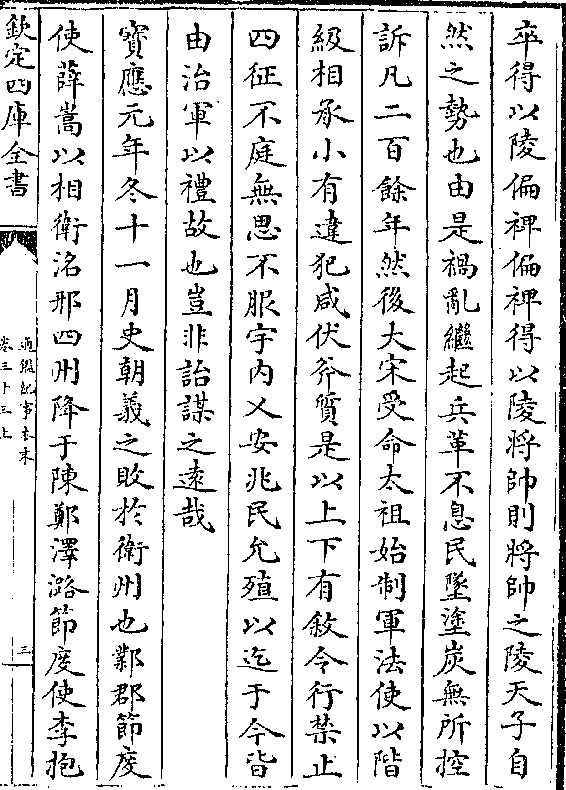 卒得以陵偏禆偏禆得以陵將帥則將帥之陵天子自
然之勢也由是禍亂繼起兵革不息民墜塗炭無所控
訴凡二百餘年然後大宋受命太祖始制軍法使以階
級相承小有違犯咸伏斧質是以上下有敘令行禁止
四征不庭無思不服宇内乂安兆民允殖以迄于今皆
由治軍以禮故也豈非詒謀之逺哉
寳應元年冬十一月史朝義之敗於衛州也鄴郡節度
使薛嵩以相衛洺邢四州降于陳鄭澤潞節度使李抱
欽定四庫全書
通鑑紀事本末
卷三十三上
三